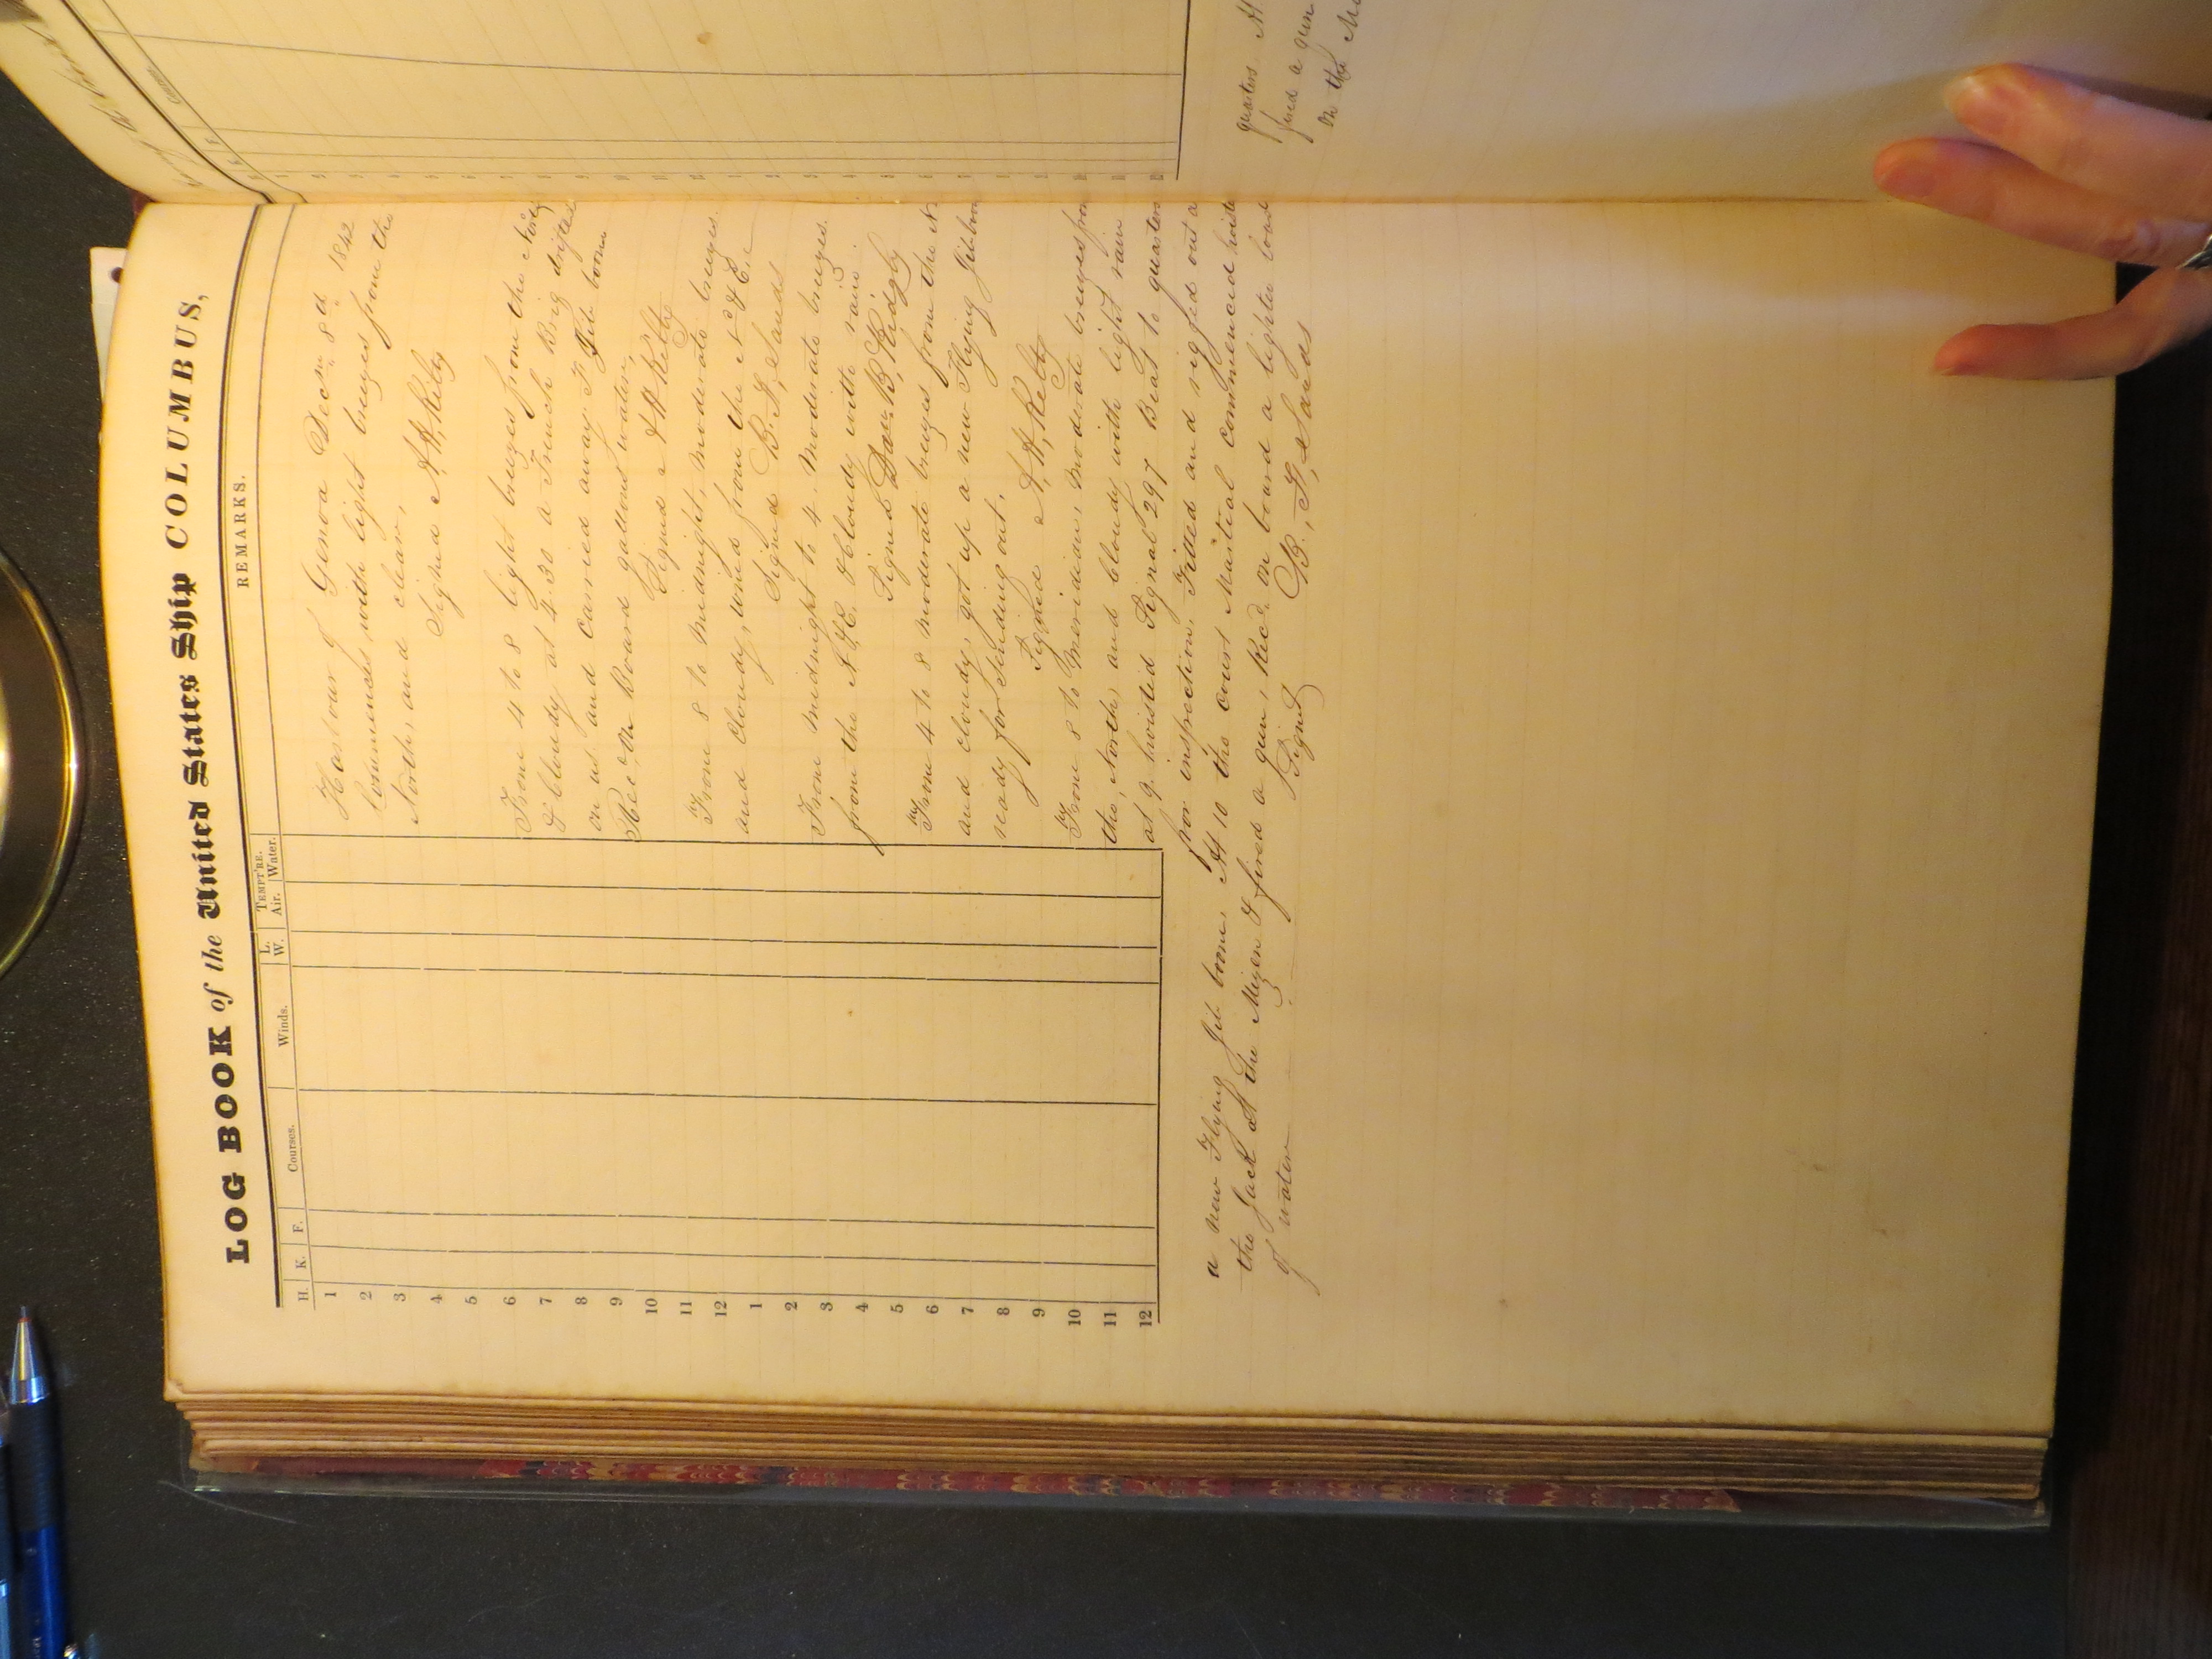 LOG BOOK of the United States Ship COLUMBUS,
H. K. F. Courses. Winds. L. W. TEMPT'RE. Air. Water. REMARKS.
1
2
3
4
5
6
7
8
9
10
11
12
1
2
3
4
5
6
7
8
9
10
11
12
Harbour of Genoa Decm. 8th 1842
Commences with light breezes from the
North, and clear,
Signed A, H, Kilty
From 4 to 8 light breezes from the
& Cloudy at 4.30 a French Brig drifted
on us and Carried away F Jib boom
Rec,, on Board gallons water,
Signed A H Kelty
From 8 to midnight, moderate breezes.
and Cloudy, wind from the N & E.
Signed B. F, Sands
From Midnight to 4. Moderate breezes.
from the N,&E. & Cloudy with rain.
Signed Danl. B, Ridgly
From 4 to 8 moderate breezes from the N
and cloudy, got up a new Flying Jib-boom
ready for sending out,
Signed A, H, Kelty
From 8 to Meridian, Moderate breezes from
the, North, and Cloudy with light rain
at 9. hoisted Signal 297 Beat to quarters
for inspection, Fitted and rigged out a
a new Flying Jib boom, At 10 the court Martial commenced hoisted
the Jack at the Mizen & fired a gun, Recd. on board a lighter load
of water
Signed B, F, Sands
quarters At
fired a gun
on the